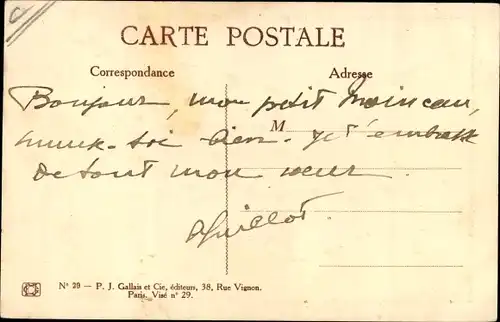 CARTE POSTALE
Correspondance
Adresse
Bonjour, mon petit Moineau,
M
amuse-toi bien. Je t'embrasse
de tout mon cœur
Guillot
N° 29 — P. J. Gallais et Cie, éditeurs, 38, Rue Vignon.
Paris. Visé n° 29.